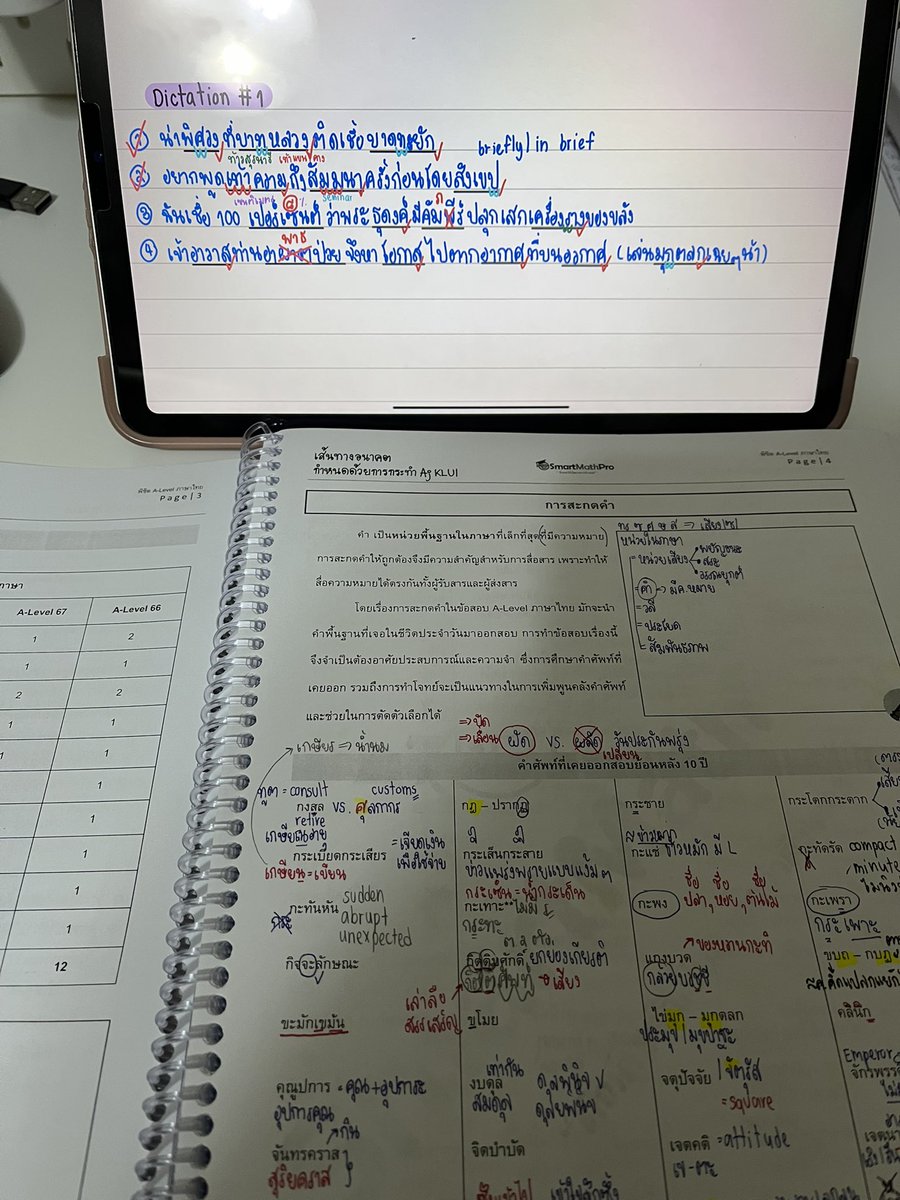 Dictation #1
① น่าพิศวงที่บาทหลวงติดเชื้อบาดทะยัก briefly/in brief
ท้าวสุรนารี เท้าแขน คาง
② อยากพูดเท้าความถึงสัมมนาครั้งก่อนโดยสังเขป
เซนติเมตร % seminar
③ ฉันเชื่อ 100 เปอร์เซ็นต์ ว่าพระธุดงค์มีคัมภีร์ ปลุกเสกเครื่องรางของขลัง
④ เจ้าอาวาสท่านอาพาธป่วยจึงหาโอกาสไปตากอากาศที่บนอวกาศ (เล่นมุกตลกเฉยๆน้า)
พิชิต A-Level ภาษาไทย
Page | 3
ภาษา
A-Level 67 A-Level 66
1 2
1 1
2 2
1 1
1 1
1
1
1
1
12
เส้นทางอนาคต
กำหนดด้วยการกระทำ Aj KLUI
SmartMathPro
พิชิต A-Level ภาษาไทย
Page | 4
การสะกดคำ
คำ เป็นหน่วยพื้นฐานในภาษาที่เล็กที่สุดที่มีความหมาย
การสะกดคำให้ถูกต้องจึงมีความสำคัญสำหรับการสื่อสาร เพราะทำให้
สื่อความหมายได้ตรงกันทั้งผู้รับสารและผู้ส่งสาร
โดยเรื่องการสะกดคำในข้อสอบ A-Level ภาษาไทย มักจะนำ
คำพื้นฐานที่เจอในชีวิตประจำวันมาออกสอบ การทำข้อสอบเรื่องนี้
จึงจำเป็นต้องอาศัยประสบการณ์และความจำ ซึ่งการศึกษาคำศัพท์ที่
เคยออก รวมถึงการทำโจทย์จะเป็นแนวทางในการเพิ่มพูนคลังคำศัพท์
และช่วยในการตัดตัวเลือกได้
หน่วยในภาษา
- หน่วยเสียง พยัญชนะ
สระ
วรรณยุกต์
- คำ → มีค.หมาย
- วลี
- ประโยค
- สัมพันธภาพ
⇒ ปัด
⇒ เลื่อน ผัด VS. ผลัด วันประกันพรุ่ง
เปลี่ยน
เกษียร ⇒ น้ำนม
คำศัพท์ที่เคยออกสอบย้อนหลัง 10 ปี
ทูต = consult customs
กงสุล VS. ศุลกากร
retire
เกษียณอายุ
กระเบียดกระเสียร = เจียดเงินเพื่อใช้จ่าย
เกษียน = เขียน
กะทันหัน sudden
abrupt
unexpected
กิจจะลักษณะ
ขะมักเขม้น
คุณูปการ = คุณ + อุปการะ
อุปการคุณ
กิน
จันทรคราส
สุริยคราส
กฎ – ปรากฏ
กระเส็นกระสาย
กระเซ็น = น้ำกระเด็น
กะเทาะ
กระทะ
กิตติมศักดิ์ ยกย่องเกียรติ
กิตติศัพท์ → เสียง
เล่าลือ
สรรเสริญ
ขโมย
เท่ากัน
งบดุล
สมดุล
ดุลพินิจ
ดุลยพินิจ
จิตบำบัด
กระชาย
กะแช่
กะพง ชื่อปลา, ชื่อหอย, ชื่อต้นไม้
ของหวานกะทิ
แกงบวด
กล้วยบวชชี
ไข่มุก – มุกตลก
ประมุข / มุขปาฐะ
จตุปัจจัย / จัตุรัส
= square
เจตคติ = attitude
เจ-ตะ
กระโดกกระดาก
กะทัดรัด compact
minute
กะเพรา
กระเพาะ
ขบถ – กบฏ
คลินิก
Emperor